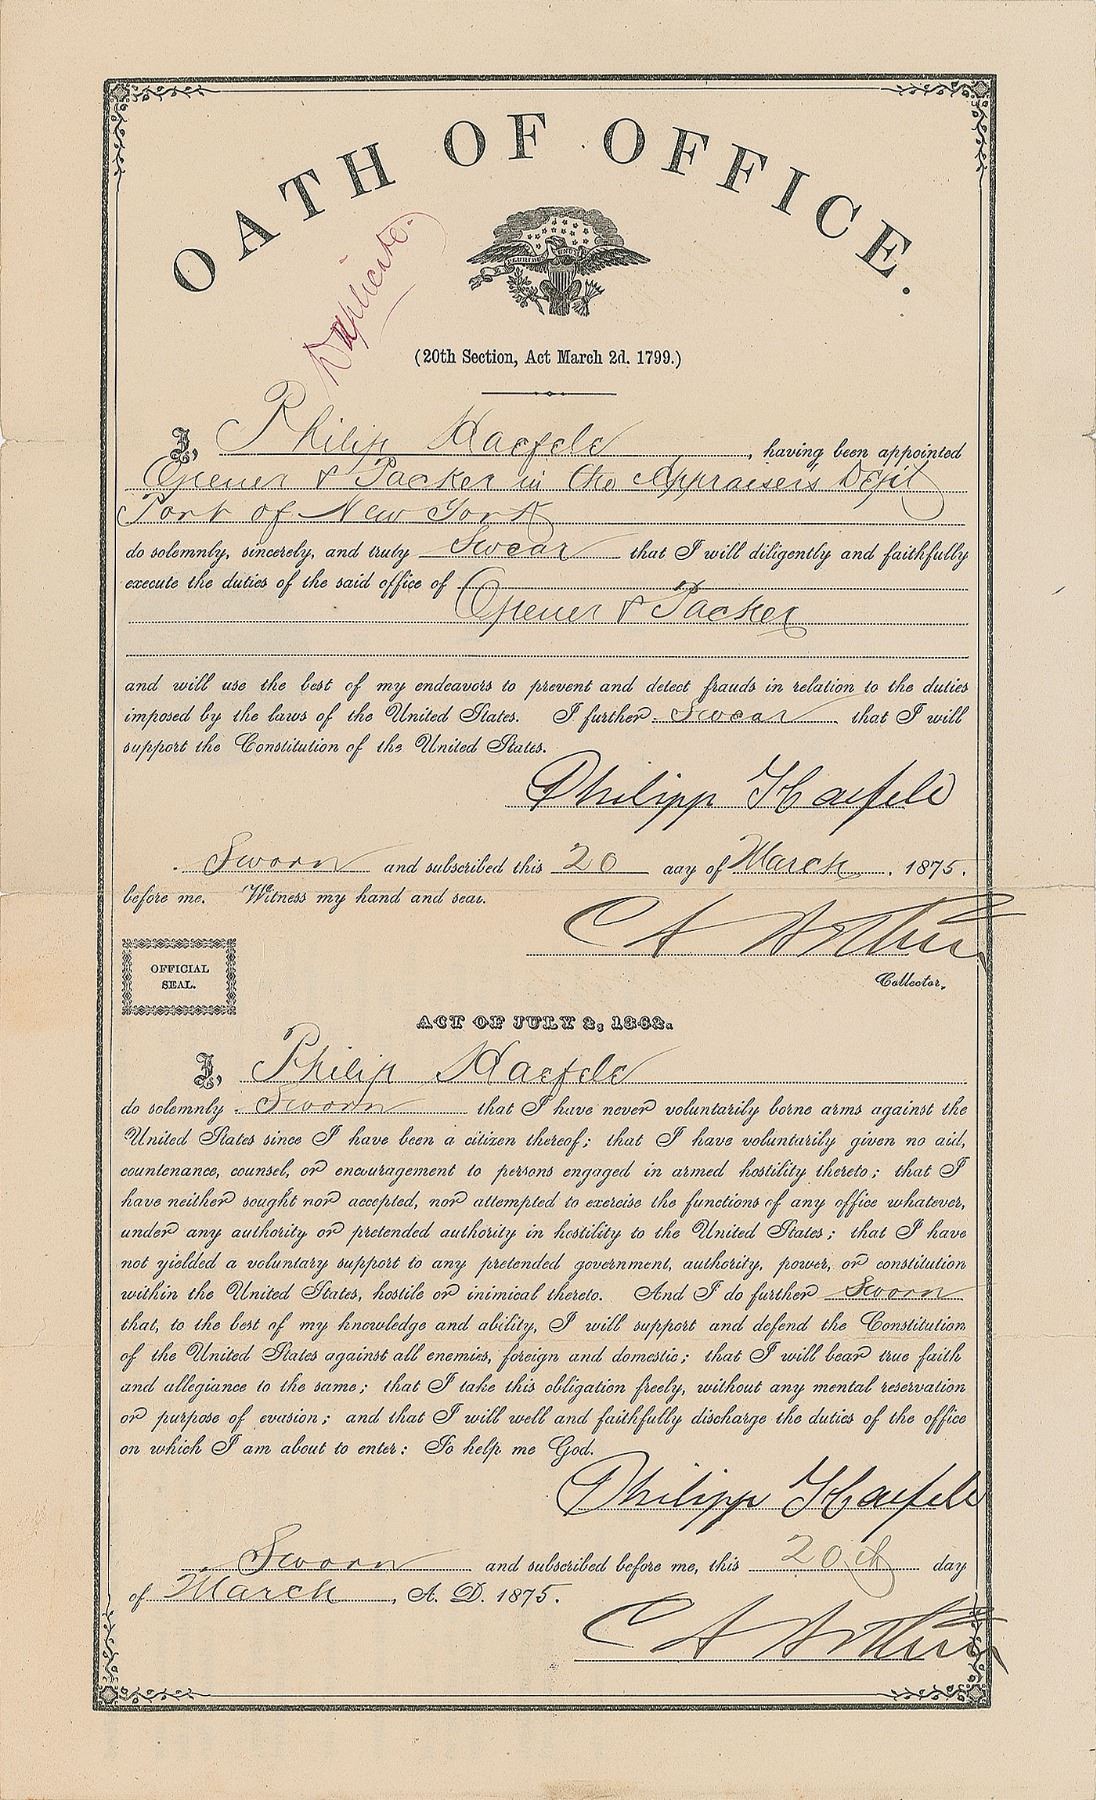 OATH OF OFFICE.
Duplicate.
PLURIBUS UNUM
(20th Section, Act March 2d. 1799.)
I, Philip Haefele, having been appointed
Opener & Packer in the Appraisers Dept
Port of New York
do solemnly, sincerely, and truly Swear that I will diligently and faithfully
execute the duties of the said office of
Opener & Packer
and will use the best of my endeavors to prevent and detect frauds in relation to the duties
imposed by the laws of the United States. I further Swear that I will
support the Constitution of the United States.
Philipp Haefele
Sworn and subscribed this 20 day of March, 1875.
before me. Witness my hand and seal.
C A Arthur
Collector.
OFFICIAL
SEAL.
ACT OF JULY 2, 1862.
I, Philip Haefele
do solemnly Sworn that I have never voluntarily borne arms against the
United States since I have been a citizen thereof; that I have voluntarily given no aid,
countenance, counsel, or encouragement to persons engaged in armed hostility thereto; that I
have neither sought nor accepted, nor attempted to exercise the functions of any office whatever,
under any authority or pretended authority in hostility to the United States; that I have
not yielded a voluntary support to any pretended government, authority, power, or constitution
within the United States, hostile or inimical thereto. And I do further Sworn
that, to the best of my knowledge and ability, I will support and defend the Constitution
of the United States against all enemies, foreign and domestic; that I will bear true faith
and allegiance to the same; that I take this obligation freely, without any mental reservation
or purpose of evasion; and that I will well and faithfully discharge the duties of the office
on which I am about to enter: So help me God.
Philipp Haefele
Sworn and subscribed before me, this 20th day
of March, A. D. 1875.
C A Arthur